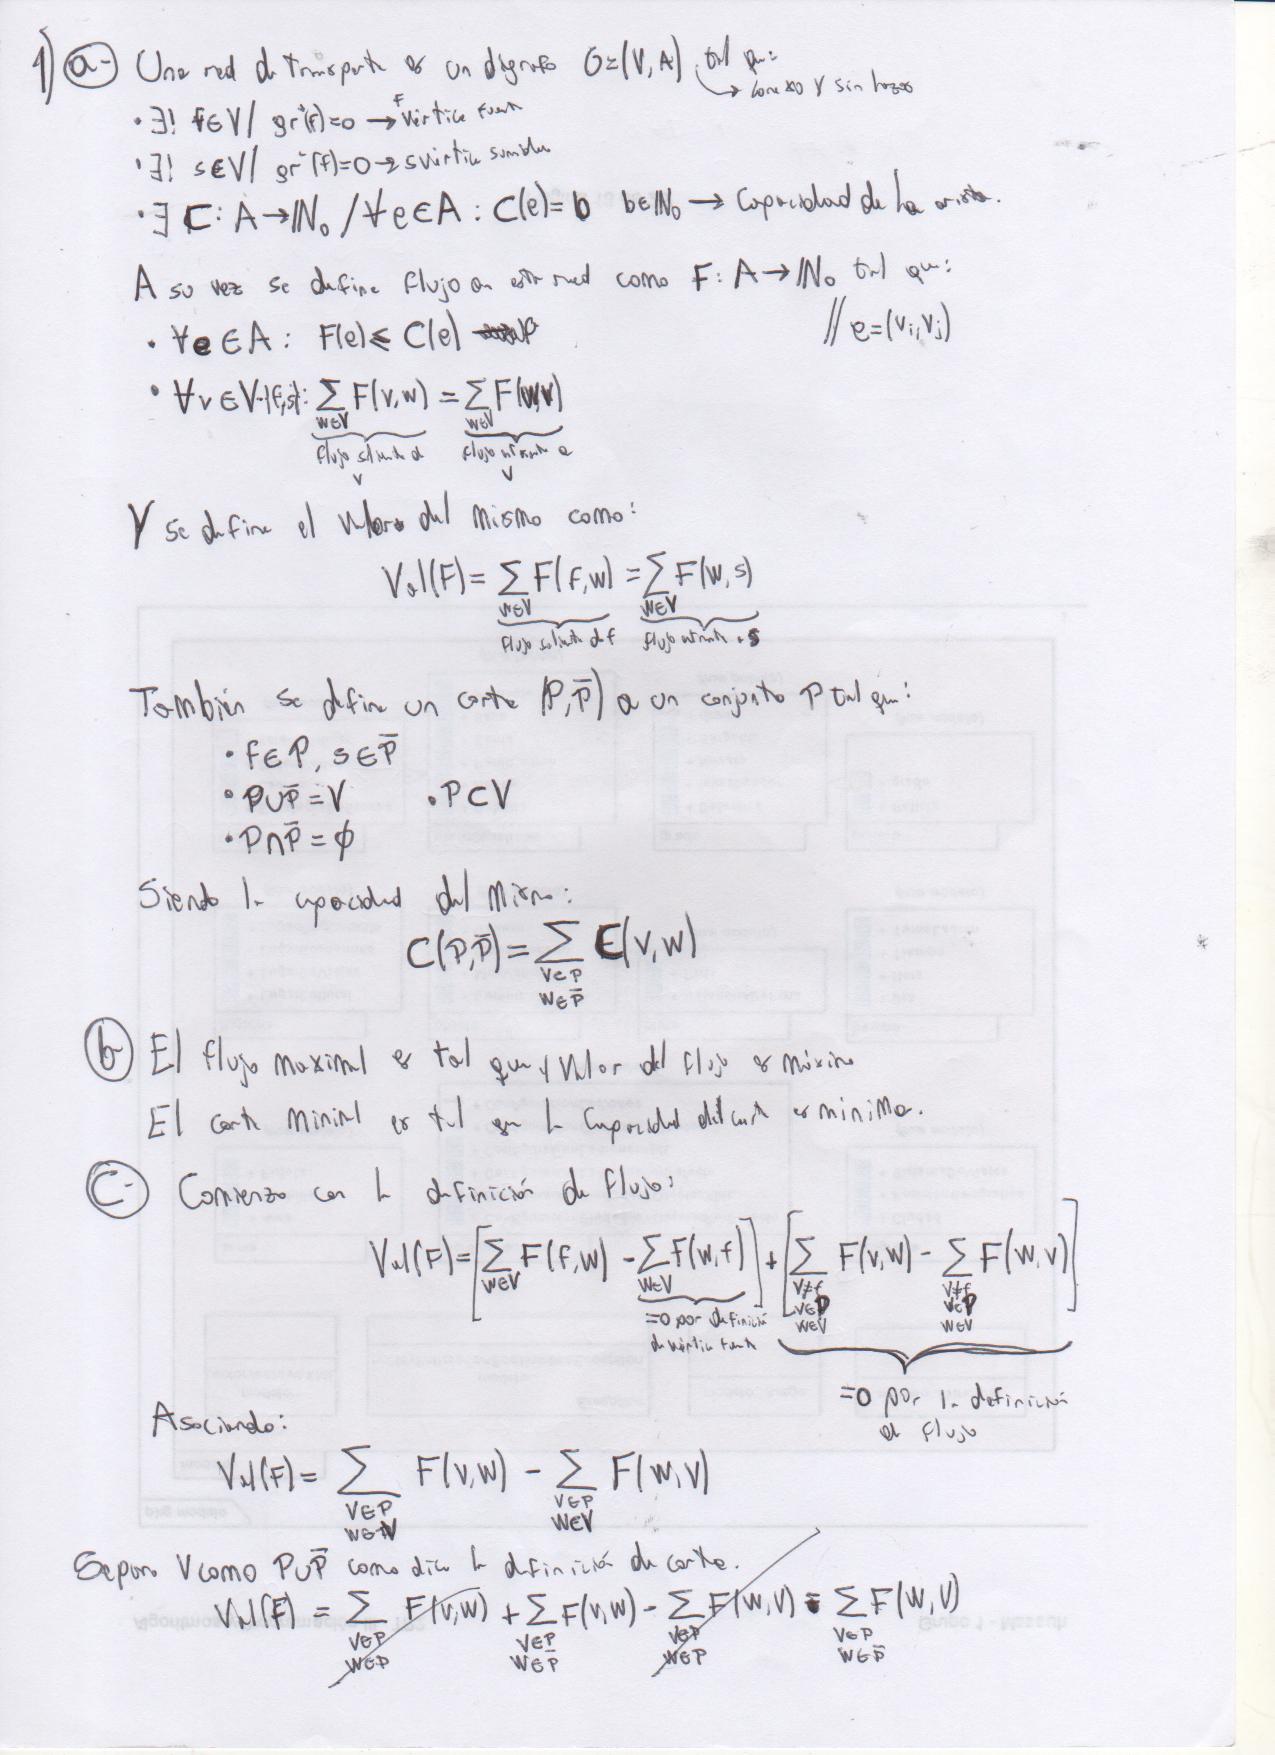 1) a- Una red de transporte es un dígrafo G=(V,A) tal que:
→ conexo y sin lazos
• ∃! f∈V/ gr⁺(f)=0 → f vértice fuente
• ∃! s∈V/ gr⁻(f)=0 → s vértice sumidero
• ∃ C: A→ℕ₀ / ∀e∈A : C(e)=b b∈ℕ₀ → Capacidad de la arista.
A su vez se define flujo en esta red como F: A→ℕ₀ tal que:
• ∀e∈A: F(e)≤C(e) // e=(vᵢ,vⱼ)
• ∀v∈V-{f,s}: ∑ F(v,w) = ∑ F(w,v)
w∈V w∈V
flujo saliente de v flujo entrante a v
Y se define el valor del mismo como:
Val(F)= ∑ F(f,w) = ∑ F(w,s)
w∈V w∈V
flujo saliente de f flujo entrante a s
También se define un corte (P,P̄) a un conjunto P tal que:
• f∈P, s∈P̄
• P∪P̄=V • P⊂V
• P∩P̄=∅
Siendo la capacidad del mismo:
C(P,P̄)= ∑ C(v,w)
v∈P
w∈P̄
b- El flujo maximal es tal que el valor del flujo es máximo
El corte minimal es tal que la capacidad del corte es mínima.
C- Comienzo con la definición de flujo:
Val(F)=[∑ F(f,w) - ∑ F(w,f)] + [∑ F(v,w) - ∑ F(w,v)]
w∈V w∈V v≠f v≠f
v∈P v∈P
w∈V w∈V
=0 por definición de vértice fuente
=0 por la definición de flujo
Asociando:
Val(F)= ∑ F(v,w) - ∑ F(w,v)
v∈P v∈P
w∈V w∈V
Separo V como P∪P̄ como dice la definición de corte.
Val(F) = ∑ F(v,w) + ∑ F(v,w) - ∑ F(w,v) - ∑ F(w,v)
v∈P v∈P v∈P v∈P
w∈P w∈P̄ w∈P w∈P̄